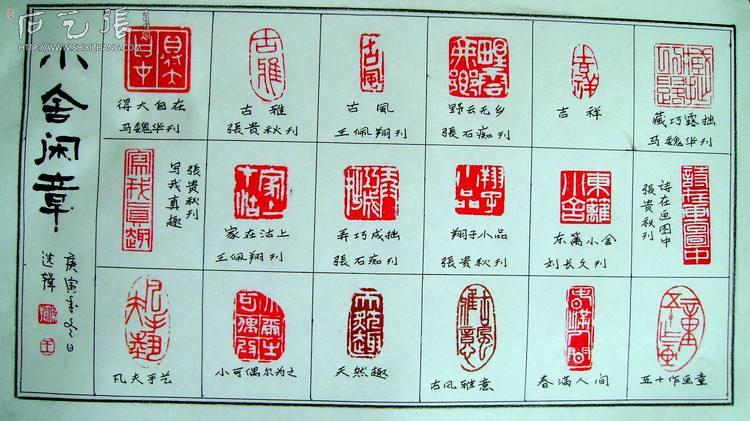 石艺張
WWW.SHIYIZHANG.COM
小舍闲章
庚寅年冬日
选辑
得大自在
马魏华刊
古雅
張贵秋刊
古風
王佩翔刊
野云无乡
張石痴刊
吉祥
藏巧露拙
马魏华刊
張贵秋刊
写我真趣
寫我真趣
家在沽上
家在沽上
王佩翔刊
弄巧成拙
張石痴刊
翔子小品
翔子小品
張贵秋刊
東籬小舍
东篱小舍
刘长久刊
诗在画图中
張贵秋刊
凡夫手艺
小可偶尔为之
天然趣
古风雅意
春满人间
五十作画童